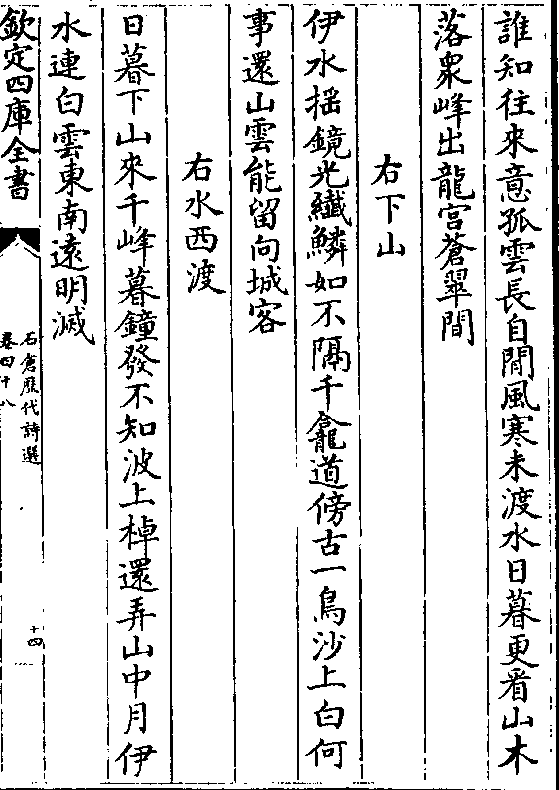 誰知往來意孤雲長自閒風寒未渡水日暮更看山木
落衆峰出龍宮蒼翠間
右下山
伊水揺鏡光纎鱗如不隔千龕道傍古一鳥沙上白何
事還山雲能留向城客
右水西渡
日暮下山來千峰暮鐘發不知波上棹還弄山中月伊
水連白雲東南遠明滅
欽定四庫全書
石倉歷代詩選
卷四十八
十四